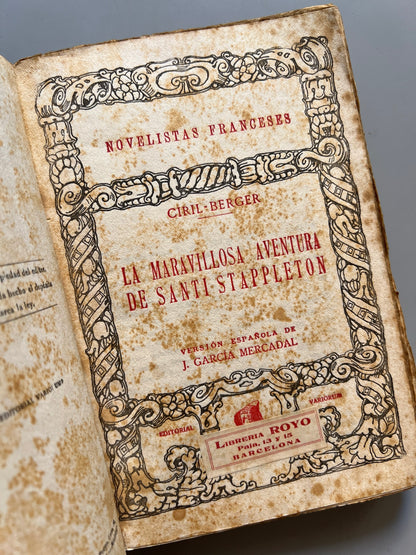 piedad del editor.
da hecho el depósito
marca la ley.
NOVELISTAS FRANCESES
CIRIL-BERGER
LA MARAVILLOSA AVENTURA
DE SANTI STAPPLETON
VERSIÓN ESPAÑOLA DE
J. GARCÍA MERCADAL
EDITORIAL VARIORUM
LIBRERIA ROYO
Paja, 13 y 15
BARCELONA